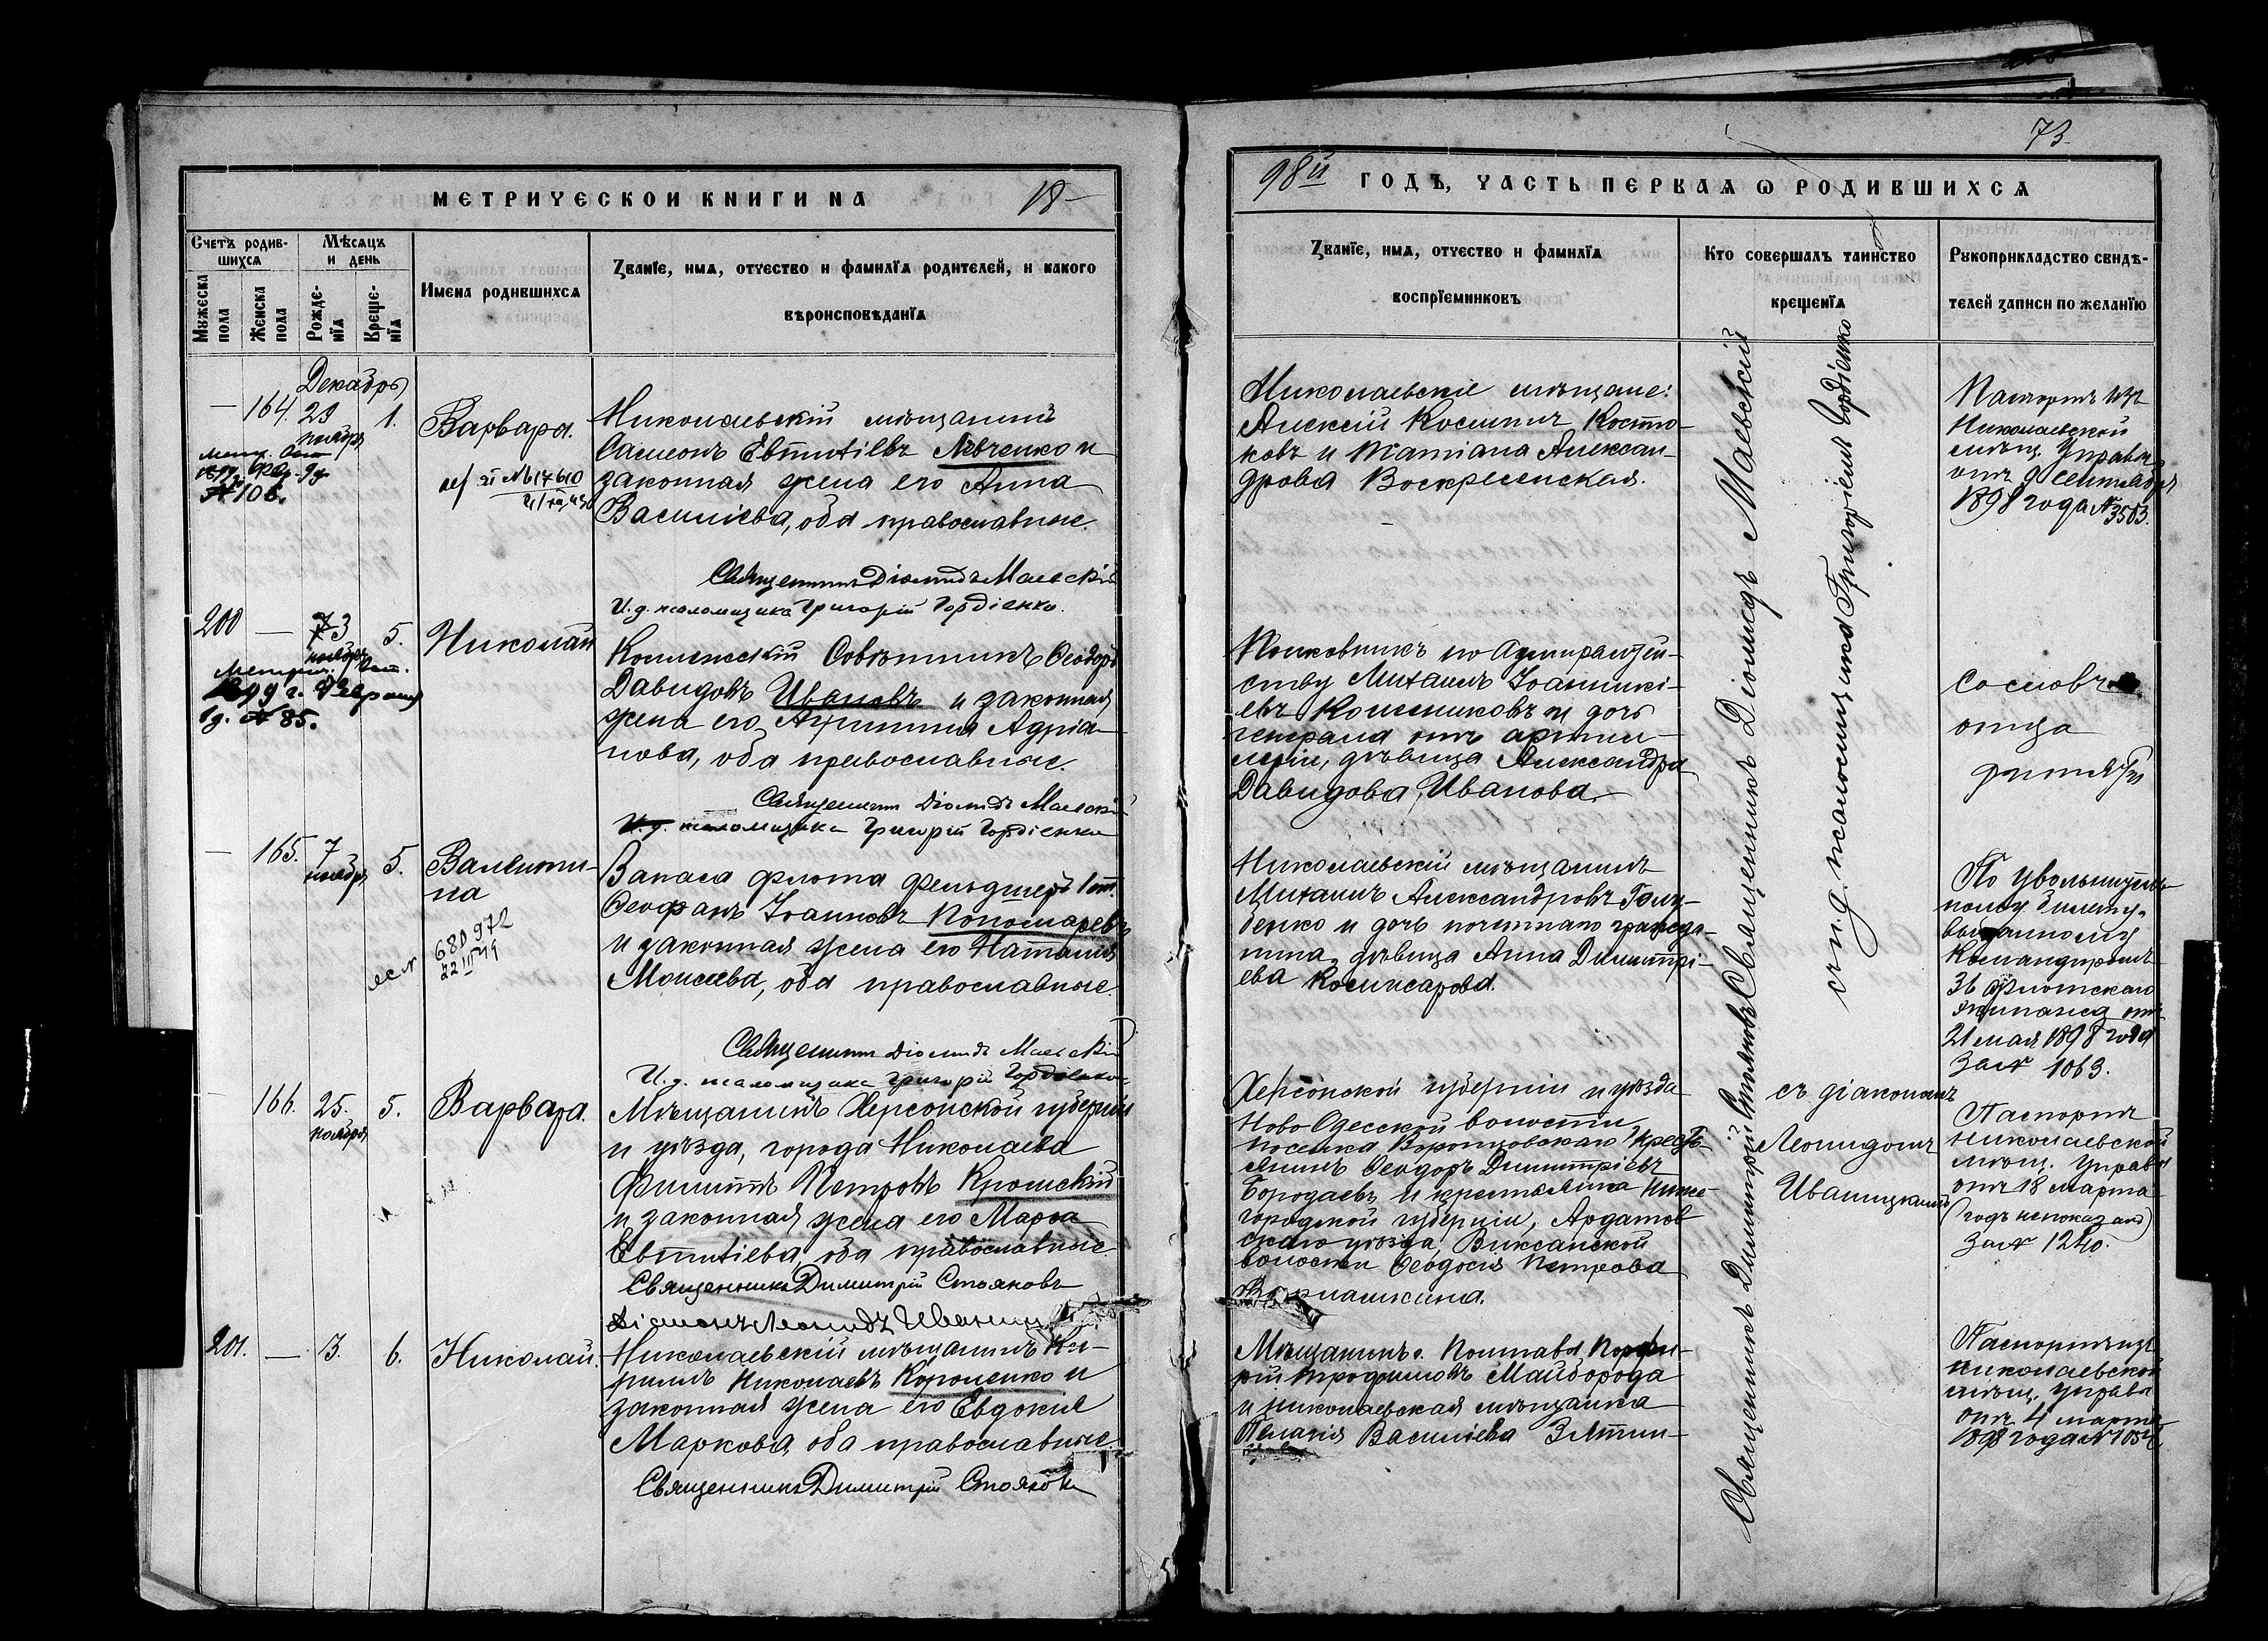 73
МЕТРИЧЕСКОЙ КНИГИ НА 18–
98й ГОДЪ, ЧАСТЬ ПЕРВАЯ О РОДИВШИХСЯ
Счетъ родив-
шихся
Мужеска
пола
Женска
пола
Мѣсяцъ
и день
Рожде-
нія
Креще-
нія
Имена родившихся
Званіе, имя, отчество и фамилія родителей, и какого
вѣроисповѣданія
Званіе, имя, отчество и фамилія
воспріемниковъ
Кто совершалъ таинство
крещенія
Рукоприкладство свидѣ-
телей записи по желанію
Декабрь
— 164. 29 1.
ноября
№ 106.
Варвара.
№17610
Николаевскій мѣщанинъ
Самсонъ Евтитіевъ Левченко и
законная жена его Анна
Василіева, оба православные.
Священникъ Діомидъ Маевскій
И. д. псаломщика Григорій Гордіенко.
Николаевскіе мѣщане:
Алексій Косминъ Косто-
ковъ и Татіана Алексан-
дрова Воскресенская.
Паспортъ изъ
Николаевской
мѣщ. Управы
отъ 9 Сентября
1898 года № 3503.
200 — 3 5.
ноября
Метрич. вып.
1899 г. Февраля
1д. № 85.
Николай
Коллежскій Совѣтникъ Ѳеодоръ
Давидовъ Ивановъ и законная
жена его Агриппина Адріа-
нова, оба православные.
Священникъ Діомидъ Маевскій
И. д. псаломщика Григорій Гордіенко
Полковникъ по Адмиралтей-
ству Михаилъ Іоанникі-
евъ Колесниковъ и дочь
генерала отъ артил-
леріи, дѣвица Александра
Давидова Иванова.
Со словъ
отца
дитяти
— 165. 7 5.
ноября
Валенти-
на
680972
22 III 49
Запаса флота фельдшеръ 1 ст.
Ѳеофанъ Іоанновъ Пономаревъ
и законная жена его Наталія
Моисеева, оба православные.
Священникъ Діомидъ Маевскій
И. д. псаломщика Григорій Гордіенко
Николаевскій мѣщанинъ
Михаилъ Александровъ Голу-
бенко и дочь почетнаго гражда-
нина, дѣвица Анна Димитрі-
ева Комисарова.
По увольнитель-
ному билету,
выданному
Командиромъ
36 флотскаго
экипажа отъ
21 мая 1898 года
За № 1063.
— 166. 25. 5.
ноября
Варвара.
Мѣщанинъ Херсонской губерніи
и уѣзда, города Николаева
Филиппъ Петровъ Кромскій
и законная жена его Марѳа
Евтитіева, оба православные
Священникъ Димитрій Стояновъ
Діаконъ Леонидъ
Херсонской губерніи и уѣзда
Ново Одесской волости,
поселка Воронцовскаго кресть-
янинъ Ѳеодоръ Димитріевъ
Бородаевъ и крестьянка Ниже-
городской губерніи, Ардатов
скаго уѣзда, Виксанской
волости Ѳеодосія Петрова
съ діакономъ
Леонидомъ
Иваницкимъ
Паспортъ
Николаевской
мѣщ. Управы
отъ 18 марта
(годъ непоказанъ)
За № 1240.
201. — 3. 6.
Николай.
Николаевскій мѣщанинъ Ки-
риллъ Николаевъ Короленко и
законная жена его Евдокія
Маркова, оба православные.
Священникъ Димитрій Стояновъ
Мѣщанинъ г. Полтавы Порфи-
рій Трофимовъ Майборода
и николаевская мѣщанка
Пелагія Василіева
Паспортъ изъ
николаевской
мѣщ. управы
отъ 4 марта
1898 года №
Священникъ Діомидъ Маевскій
съ и. д. псаломщика Григоріемъ Гордіенко
Священникъ Димитрій Стояновъ